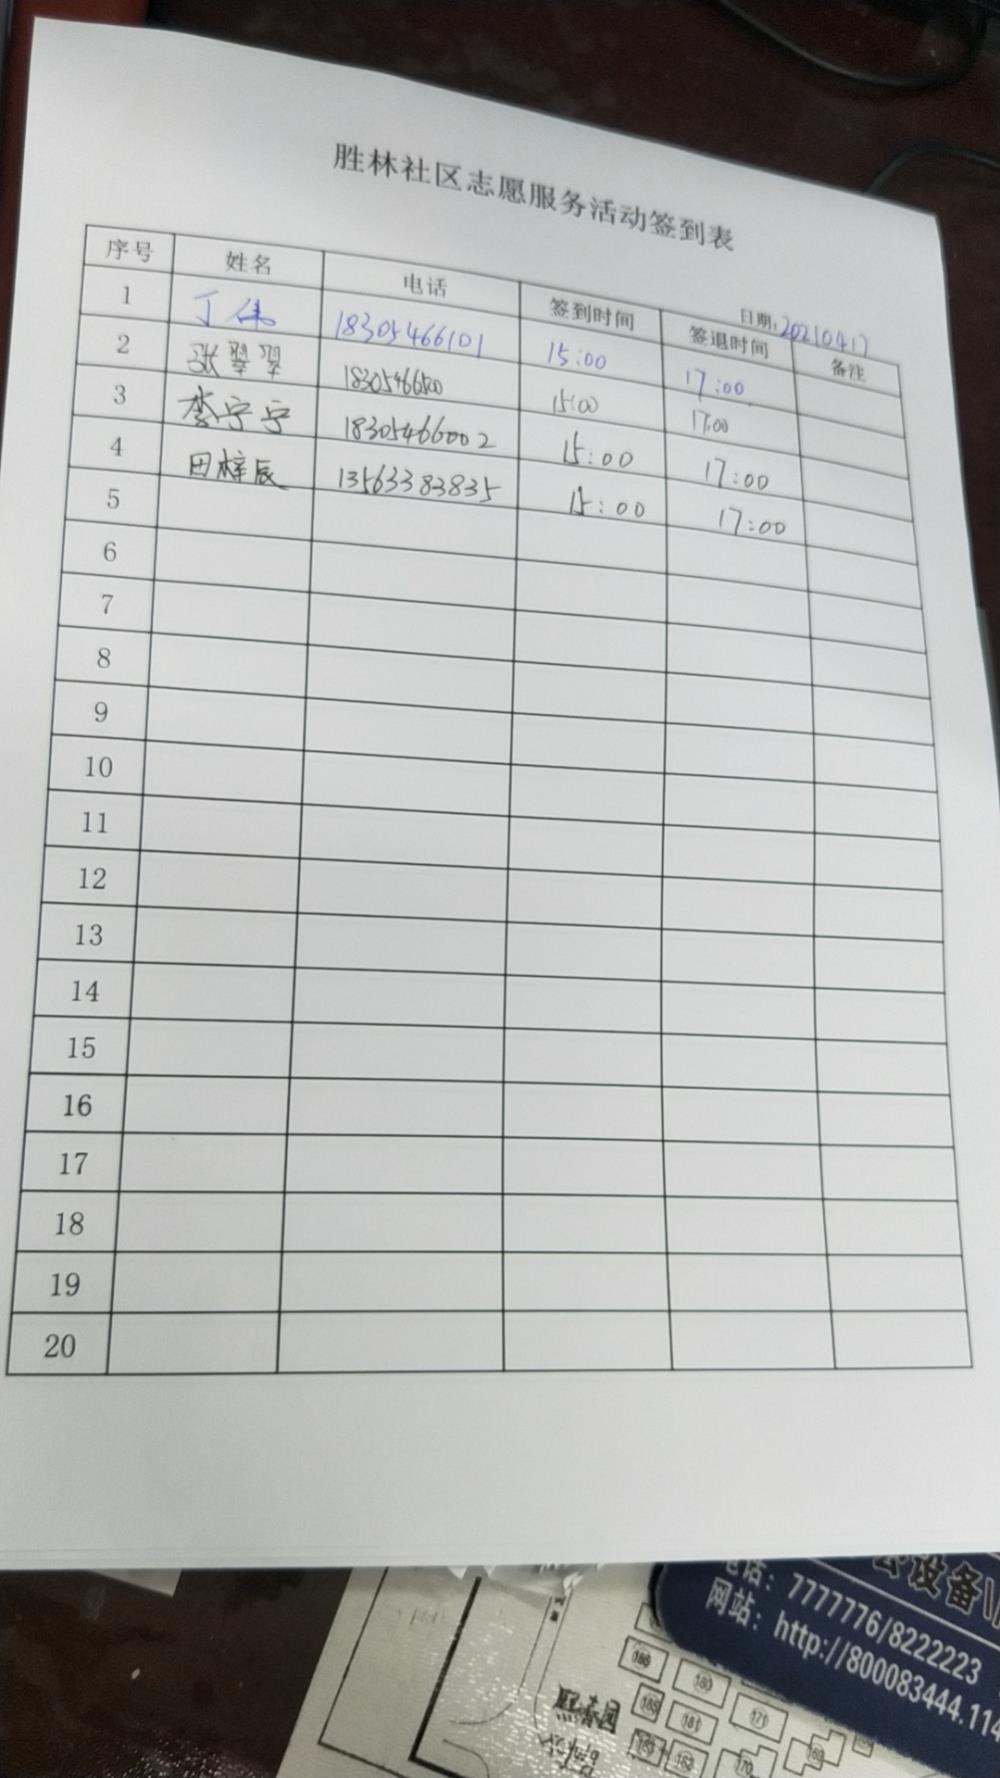 胜林社区志愿服务活动签到表
日期:20210417
序号 姓名 电话 签到时间 签退时间 备注
1 丁伟 18305466101 15:00 17:00
2 张翠翠 15:00 17:00
3 李宁宁 18305466002 15:00 17:00
4 田梓辰 13563383835 15:00 17:00
5
6
7
8
9
10
11
12
13
14
15
16
17
18
19
20
公设备
电话: 7777776/8222223
网站: http://800083444.114
熙春园
186
180
185
181
171
182
170
169